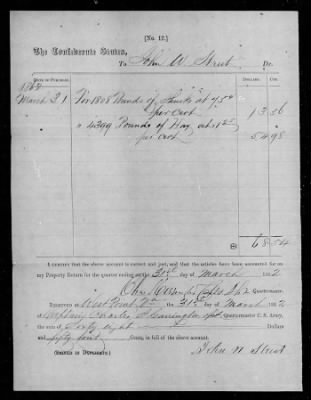 [No. 12.]
The Confederate States,
To John W. Street Dr.
DATE OF PURCHASE. DOLLARS. CTS.
1862
March 31 For 1808 Pounds of at 75¢
per cwt 13.56
" 4399 Pounds of Hay at 1.25
per cwt 54.98
$ 68.54
I CERTIFY that the above account is correct and just, and that the articles have been accounted for on
my Property Return for the quarter ending the 31st of March 1862
Quartermaster.
RECEIVED at West Point Va the 31st day of March 1862
of Captain Charles S. Carrington Quartermaster C. S. Army,
the sum of Sixty eight Dollars
and fifty four Cents, in full of the above account.
(SIGNED IN DUPLICATE.) John W. Street